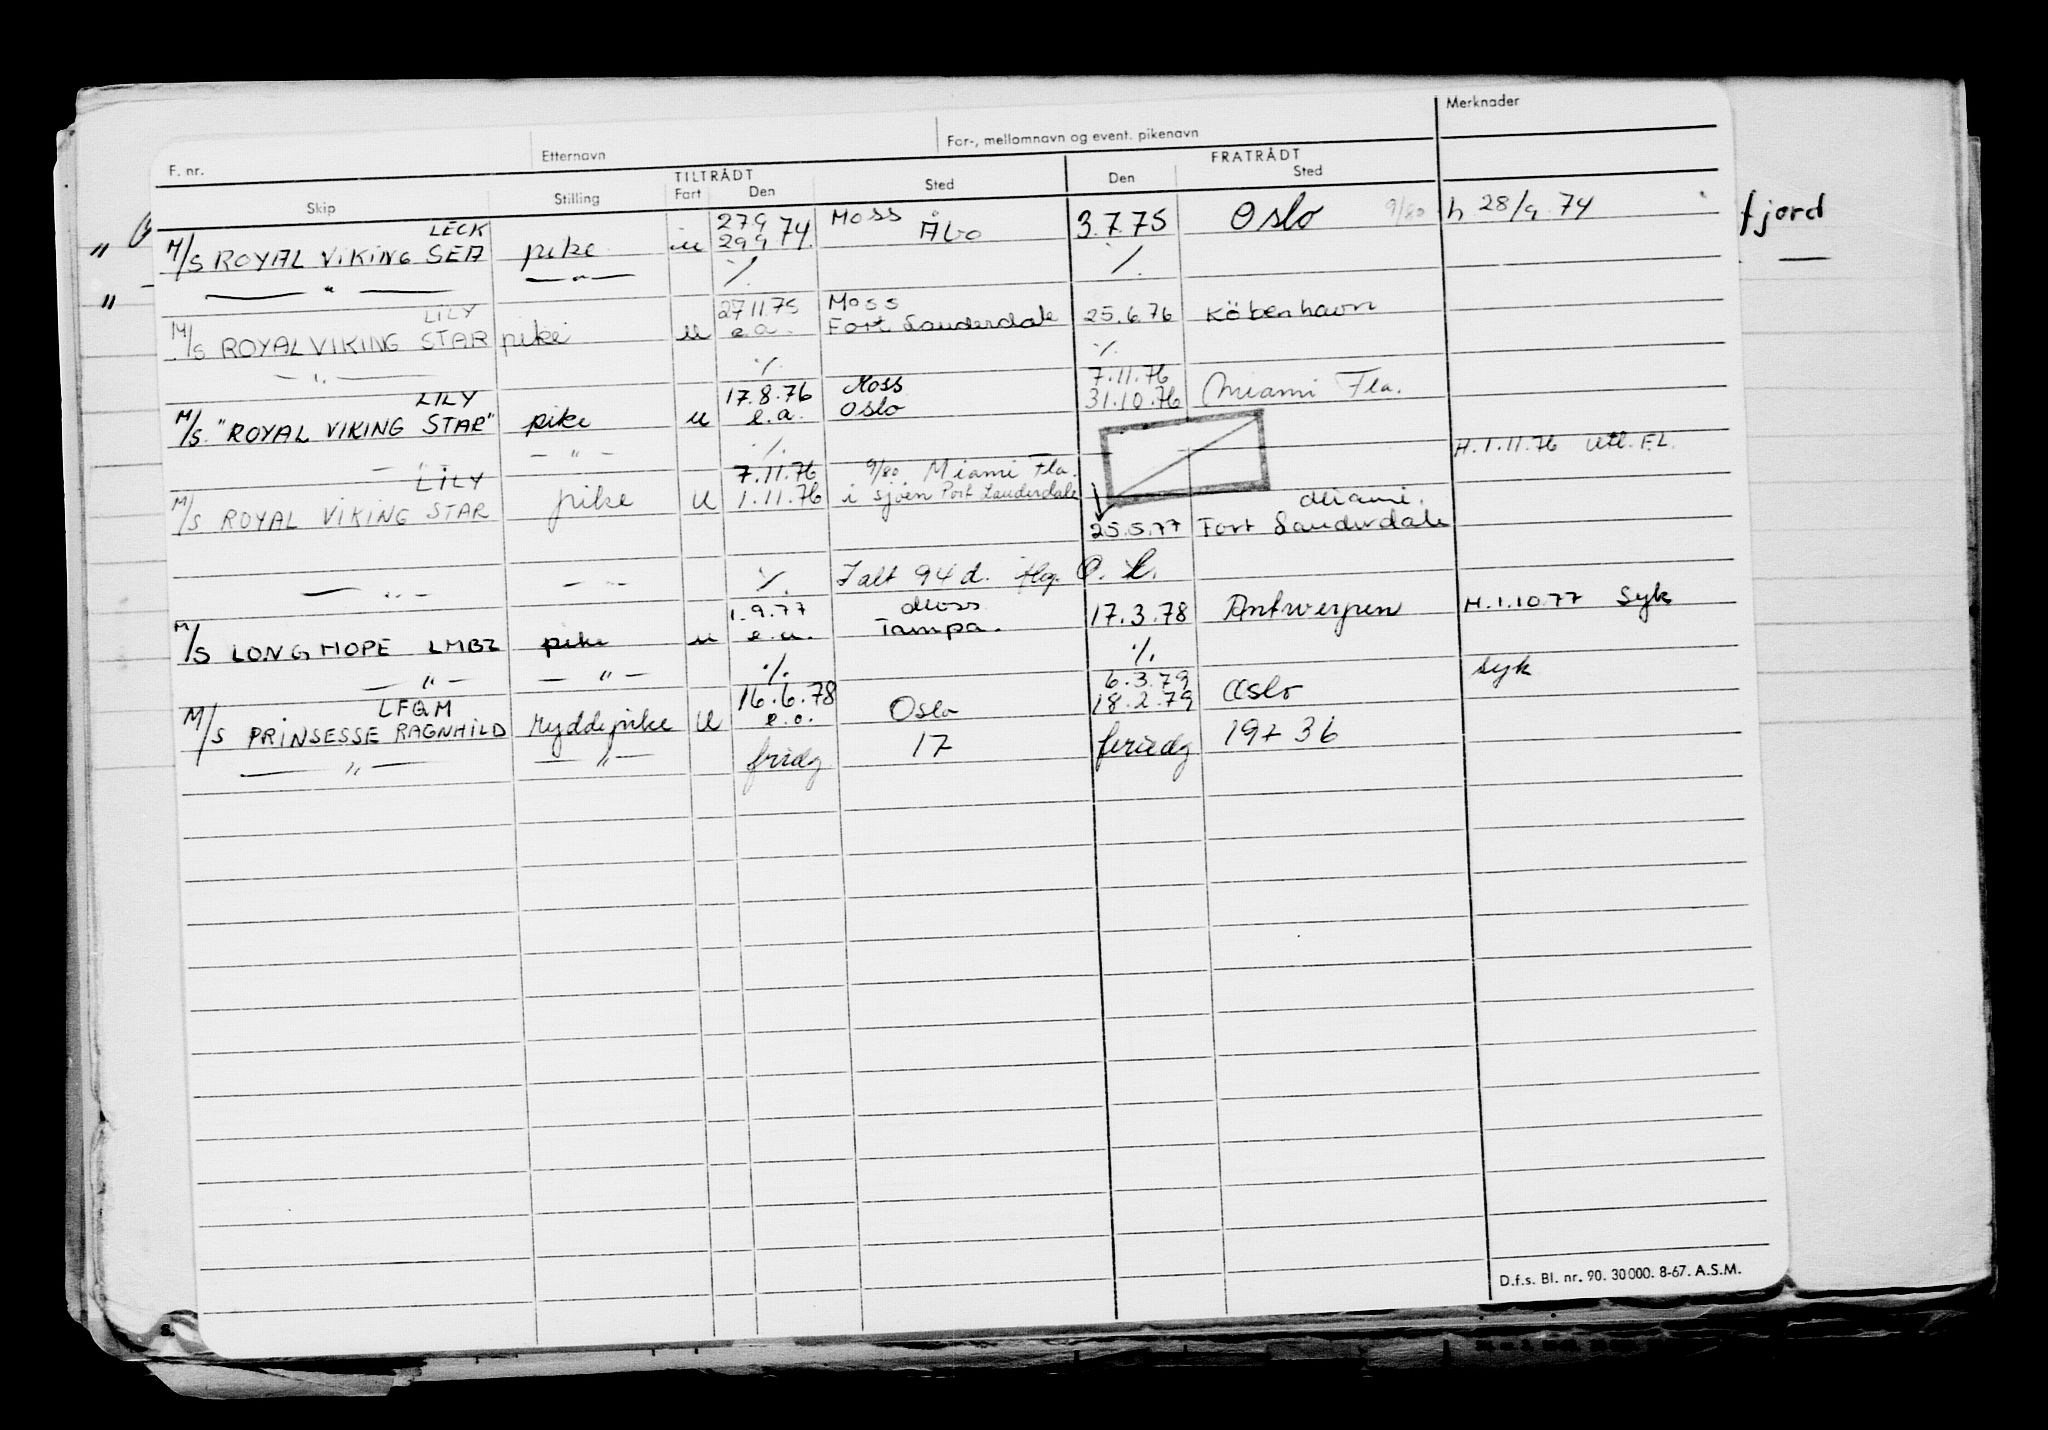 Merknader
F. nr. Etternavn For-, mellomnavn og event. pikenavn
TILTRÅDT FRATRÅDT
Skip Stilling Fart Den Sted Den Sted
LECK 27 9 74 Moss
M/S ROYAL VIKING SEA pike u 29 9 74. Åbo 3.7.75 Oslo 9/80 h 28/9 74 fjord
— " — — " — ./. ./.
LILY 27 11 75 Moss
M/S ROYAL VIKING STAR pike u e.a. Fort Lauderdale 25.6.76 Köbenhavn
— " — ./. ./.
LILY 17.8.76 Moss 7.11.76
M/S. "ROYAL VIKING STAR" pike u e.a. Oslo 31.10.76 Miami Fla.
— " — ./. H.1.11.76 utl. FL.
LILY 7.11.76 9/80 Miami Fla.
M/S ROYAL VIKING STAR pike u 1.11.76 i sjøen Port Lauderdale Miami.
25.5.77 Fort Lauderdale
— " — — " — ./. Ialt 94 d.
1.9.77 Moss
M/S LONG HOPE LMBZ pike u e.a. Tampa. 17.3.78 Antwerpen H.1.10.77 Syk
— " — — " — ./. ./.
LFQM 16.6.78 6.3.79 Syk
M/S PRINSESSE RAGNHILD ryddepike u e.a. Oslo 18.2.79 Oslo
— " — — " — fridg 17 feriedg 19 + 36
D.f.s. Bl. nr. 90. 30 000. 8-67. A.S.M.